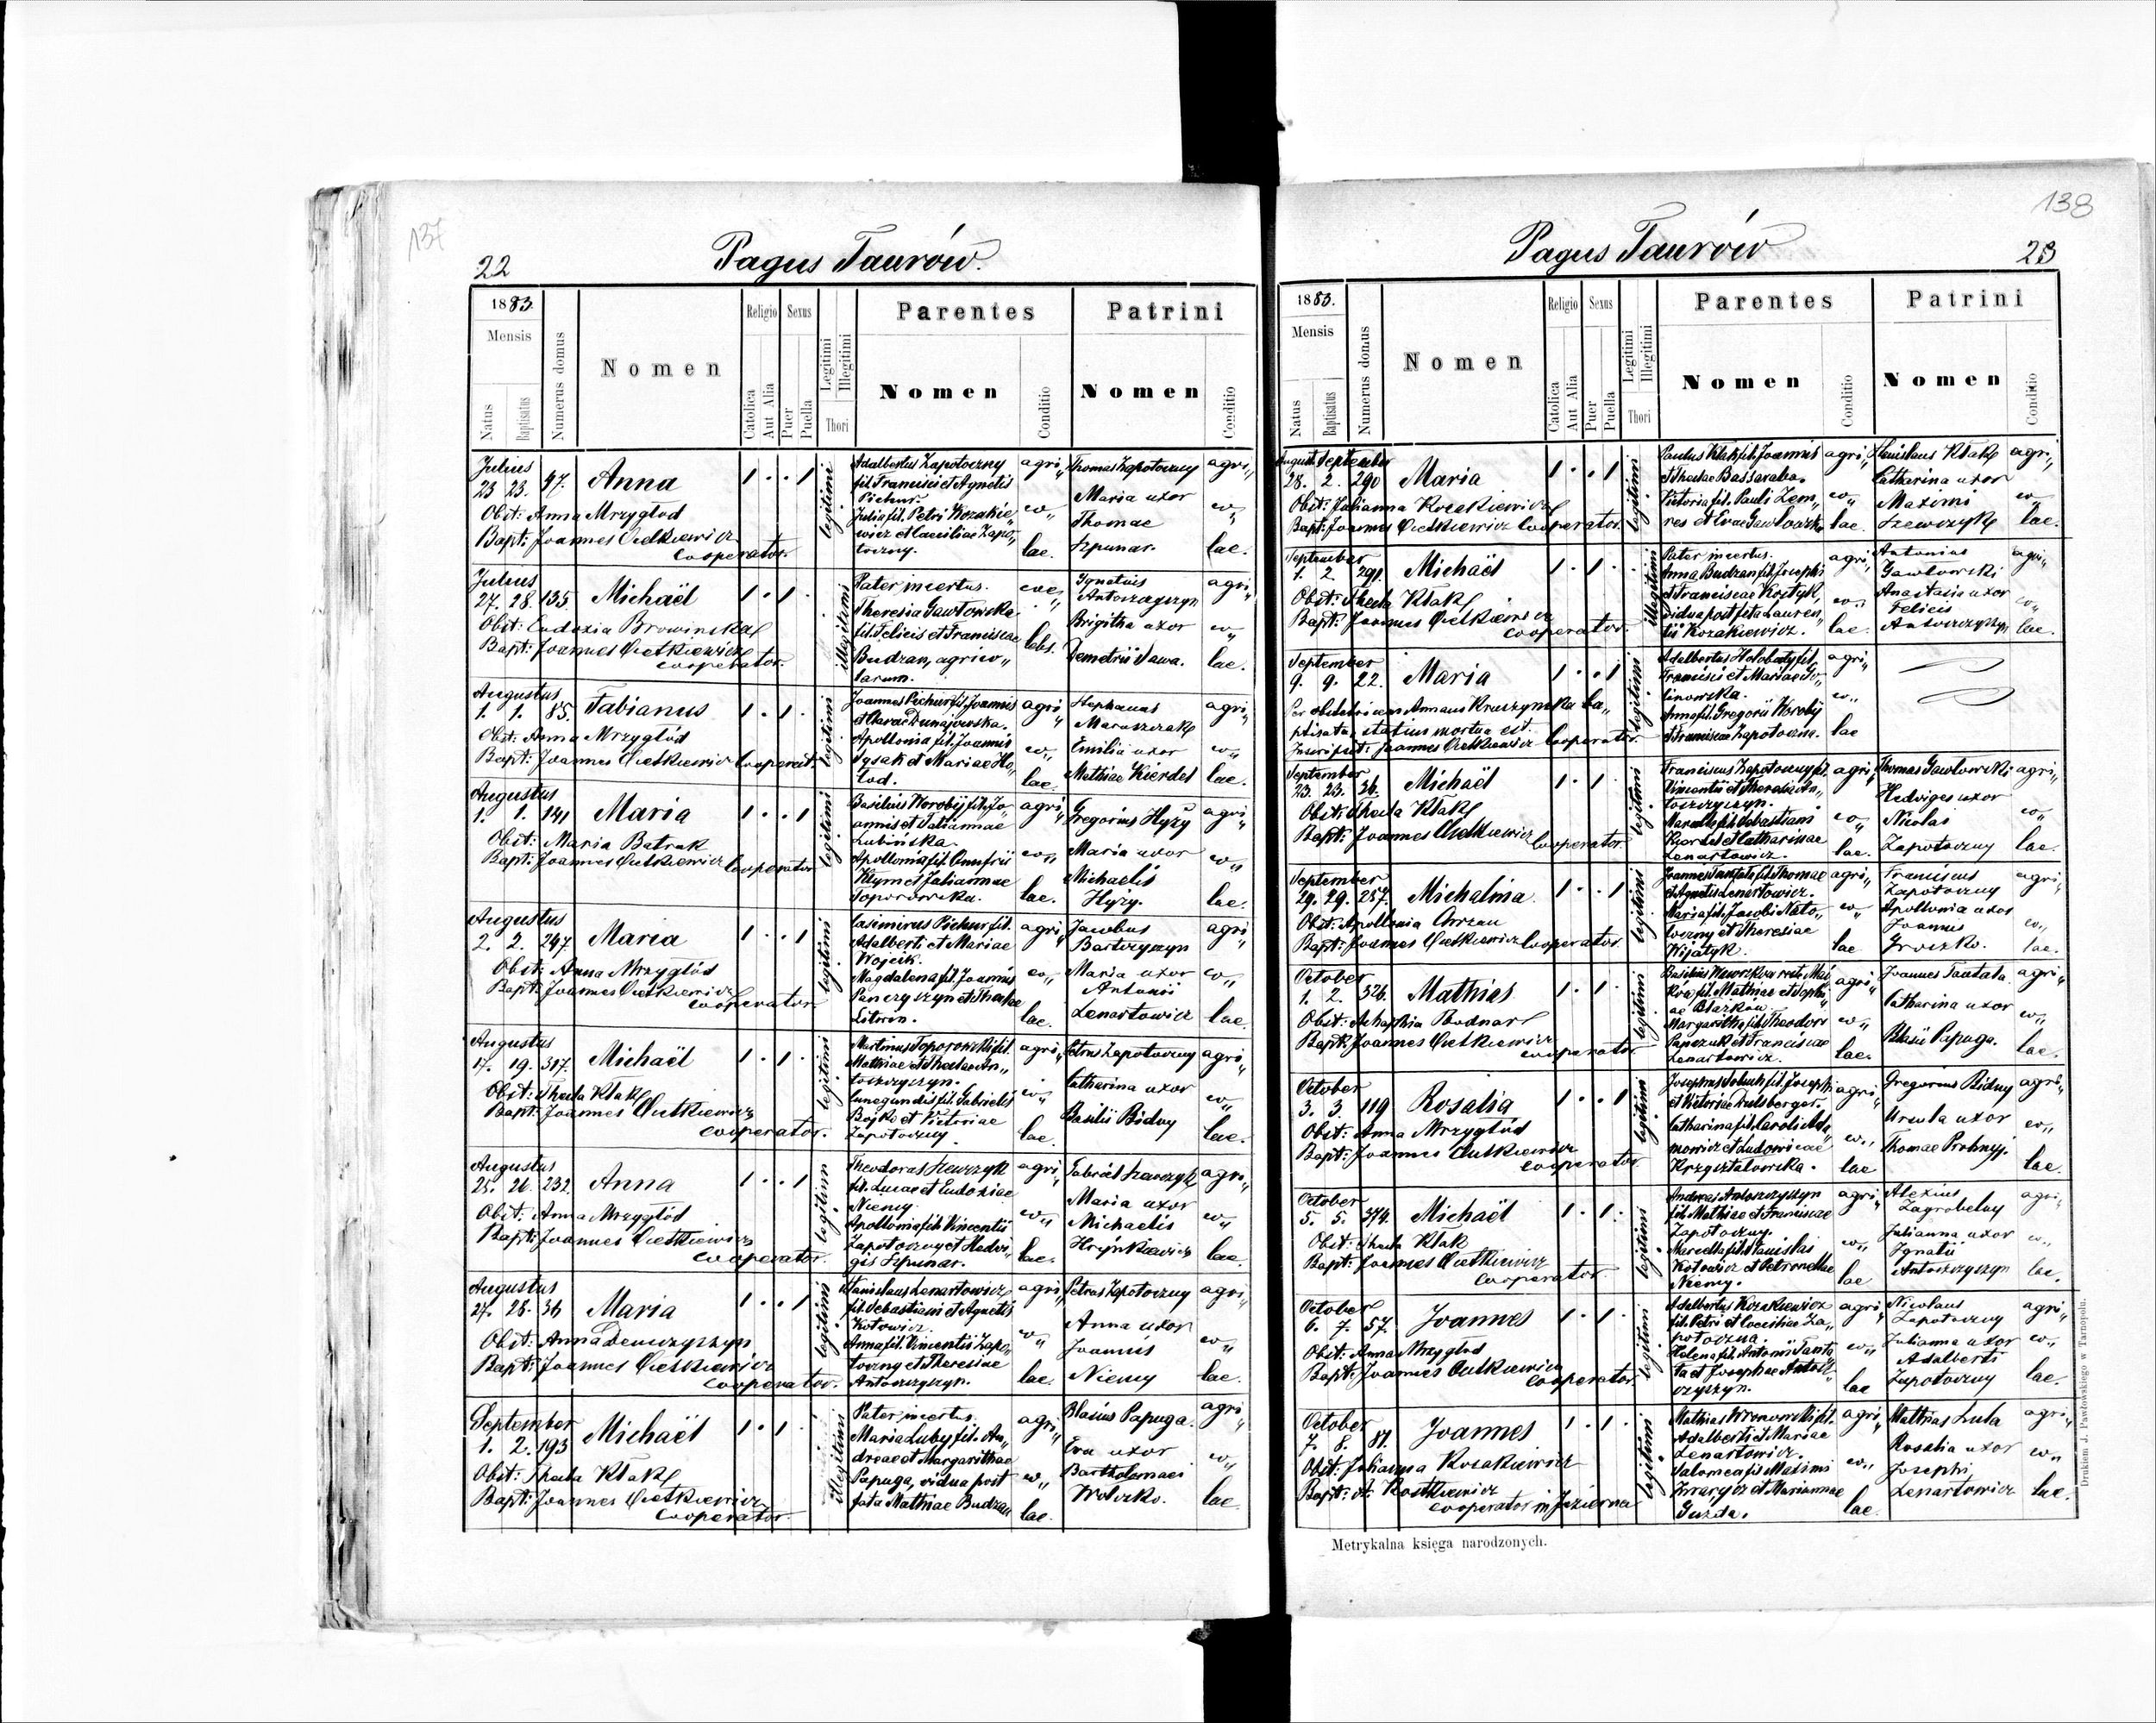 137
22
Pagus Taurów.
1883.
Mensis
Natus
Baptisatus
Numerus domus
Nomen
Religio
Catolica
Aut Alia
Sexus
Puer
Puella
Legitimi
Illegitimi
Thori
Parentes
Nomen
Conditio
Patrini
Nomen
Conditio
Julius
23 23. 97. Anna 1 . . 1 legitimi
Obst: Anna Mrzygłod
Bapt: Joannes Cietkiewicz
Cooperator.
Adalbertus Zapotoczny
fil. Francisci et Agnetis
Pichur.
Julia fil. Petri Kozakie„
wicz et Caeciliae Zapo„
toczny.
agri„
co„
lae.
Thomas Zapotoczny
Maria uxor
Thomae
Szpunar.
agri„
co„
lae.
Julius
27. 28. 135. Michaël 1 . 1 . illegitimi
Obst: Eudoxia Browinska
Bapt: Joannes Cietkiewicz
cooperator.
Pater incertus.
Theresia Gawłowska
fil. Felicis et Franciscae
Budzan, agrico„
larum.
Ignatius
Antoszczyszyn
Brigitha uxor
Demetrii Sawa.
agri„
co„
lae.
Augustus
1. 1. 85. Fabianus 1 . 1 . legitimi
Obst: Anna Mrzygłód
Bapt: Joannes Cietkiewicz Cooperat.
Joannes Pichur fil. Joannis
et Clarae Dunajowska.
Apollonia fil. Joannis
Sysak et Mariae Ho„
łod.
agri„
co„
lae.
Stephanus
Maruszczak
Emilia uxor
Mathiae Kierdel
agri„
co„
lae.
Augustus
1. 1. 141 Maria 1 . . 1 legitimi
Obst: Maria Batruk
Bapt: Joannes Cietkiewicz Cooperator
Basilius Worobij fil. Jo„
annis et Tatiannae
Lubińska.
Apollonia fil. Onufrii
Klym et Julianna
Toporowska.
agri„
co„
lae.
Gregorius Hyży
Maria uxor
Michaelis
Hyży.
agri„
co„
lae.
Augustus
2. 2. 247. Maria 1 . . 1 legitimi
Obst: Anna Mrzygłód
Bapt: Joannes Cietkiewicz
cooperator.
Casimirus Pichur fil.
Adalberti et Mariae
Wojcik.
Magdalena fil. Joannis
Panczyszyn et Theclae
Litwin.
agri„
co„
lae.
Jacobus
Bartczyszyn
Maria uxor
Antonii
Lenartowicz
agri„
co„
lae.
Augustus
17. 19. 317. Michaël 1 . 1 . legitimi
Obst: Thecla Kłak
Bapt: Joannes Cietkiewicz
cooperator.
Martinus Toporowski fil.
Mathiae et Theclae An„
toszczyszyn.
Cunegundis fil. Gabrielis
Bojko et Victoriae
Zapotoczny.
agri„
co„
lae.
Petrus Zapotoczny
Catharina uxor
Basilii Bidny
agri„
co„
lae.
Augustus
25. 26. 232. Anna 1 . . 1 legitimi
Obst: Anna Mrzygłód
Bapt: Joannes Cietkiewicz
cooperator.
Theodorus Szewczyk
fil. Lucae et Eudoxiae
Niemy.
Apollonia fil. Vincentii
Zapotoczny et Hedvi„
gis Szpunar.
agri„
co„
lae.
Gabriël Szewczyk
Maria uxor
Michaelis
Hrynkiewicz
agri„
co„
lae.
Augustus
27. 28. 36 Maria 1 . . 1 legitimi
Obst: Anna Demczyszyn
Bapt: Joannes Cietkiewicz
cooperator.
Stanislaus Lenartowicz
fil. Sebastiani et Agnetis
Kotowicz.
Anna fil. Vincentii Zapo„
toczny et Theresiae
Antoszczyszyn.
agri„
co„
lae.
Petrus Zapotoczny
Anna uxor
Joannis
Niemy
agri„
co„
lae.
September
1. 2. 193 Michaël 1 . 1 . illegitimi
Obst: Thecla Kłak
Bapt: Joannes Cietkiewicz
Cooperator.
Pater incertus.
Maria Luby fil. An„
dreae et Margarithae
Papuga, vidua post
fata Mathiae Budzan
agri„
co„
lae.
Blasius Papuga.
Eva uxor
Bartholomaei
Wolczko.
agri„
co„
lae.
138
Pagus Taurów
23
1883.
Mensis
Natus
Baptisatus
Numerus domus
Nomen
Religio
Catolica
Aut Alia
Sexus
Puer
Puella
Legitimi
Illegitimi
Thori
Parentes
Nomen
Conditio
Patrini
Nomen
Conditio
August September
28. 2. 290 Maria 1 . . 1 legitimi
Obst: Julianna Kozakiewicz
Bapt: Joannes Cietkiewicz Cooperator.
Paulus Kłak fil. Joannis
et Theclae Bassaraba.
Victoria fil. Pauli Zem„
res et Evae Gawłowska
agri„
co„
lae.
Stanislaus Kłak
Catharina uxor
Maximi
Szewczyk
agri„
co„
lae.
September
1. 2. 291. Michaël 1 . 1 . illegitimi
Obst: Thecla Kłak
Bapt: Joannes Cietkiewicz
cooperator.
Pater incertus.
Anna Budzan fil. Josephi
et Franciscae Kostyk,
vidua post fata Lauren„
tii Kozakiewicz.
agri„
co„
lae.
Antonius
Gawłowski
Anastasia uxor
Felicis
Antoszczyszyn
agri„
co„
lae.
September
9. 9. 22. Maria 1 . . 1 legitimi
Per obstetricem Annam Kruszynska ba„
ptisata, statim mortua est.
Inscripsit: Joannes Cietkiewicz Cooperator.
Adalbertus Hołobaty fil.
Francisci et Mariae Go„
linowska.
Anna fil. Gregorii Worobij
et Franciscae Zapotoczna.
agri„
co„
lae
September
23. 23. 36. Michaël 1 . 1 . legitimi
Obst: Thecla Kłak
Bapt: Joannes Cietkiewicz Cooperator
Franciscus Zapotoczny fil.
Vincentii et Theresiae An„
toszczyszyn.
Marcella fil. Sebastiani
et Catharinae
Lenartowicz.
agri„
co„
lae.
Thomas Gawłowski
Hedviges uxor
Nicolai
Zapotoczny
agri„
co„
lae.
September
29. 29. 257. Michalina 1 . . 1 legitimi
Obst: Apollonia
Bapt: Joannes Cietkiewicz Cooperator.
Joannes fil. Thomae
et Agnetis Lenartowicz.
Maria fil. Jacobi
et Theresiae
agri„
co„
lae
Franciscus
Zapotoczny
Apollonia uxor
Joannis
Groszko.
agri„
co„
lae.
October
1. 2. 326. Mathias 1 . 1 . legitimi
Obst: Bodnar
Bapt: Joannes Cietkiewicz
cooperator.
fil. Mathiae et Sophi„
ae
Margaritha fil. Theodori
Papczuk et Franciscae
Lenartowicz.
agri„
co„
lae.
Joannes Tantala
Catharina uxor
Blasii Papuga.
agri„
co„
lae.
October
3. 3. 119 Rosalia 1 . . 1 legitimi
Obst: Anna Mrzygłód
Bapt: Joannes Cietkiewicz
cooperator
Josephus fil. Josephi
et Victoriae
Catharina fil. Caroli Ada„
mowicz et Ludovicae
Krzyształowska.
agri„
co„
lae
Gregorius Bidny
Ursula uxor
Thomae Probnyj.
agri„
co„
lae.
October
5. 5. 374. Michaël 1 . 1 . legitimi
Obst: Thecla Kłak
Bapt: Joannes Cietkiewicz
cooperator.
Andreas Antoszczyszyn
fil. Mathiae et Franciscae
Zapotoczny.
Marcella fil. Stanislai
Kotowicz et Petronellae
Niemy.
agri„
co„
lae
Alexius
Zagrobelny
Julianna uxor
Ignatii
Antoszczyszyn
agri„
co„
lae.
October
6. 7. 57. Joannes 1 . 1 . legitimi
Obst: Anna Mrzygłod
Bapt: Joannes Cietkiewicz
cooperator.
Adalbertus Kozakiewicz
fil. Petri et Caeciliae Za„
potoczna.
Helena fil. Antonii Tanta„
la et Josephae Antosz„
czyszyn.
agri„
co„
lae
Nicolaus
Zapotoczny
Julianna uxor
Adalberti
Zapotoczny
agri„
co„
lae.
October
7. 8. 81. Joannes 1 . 1 . legitimi
Obst: Julianna Kozakiewicz
Bapt: Kostkiewicz
cooperator in Jezierna
Mathias fil.
Adalberti et Mariae
Lenartowicz.
Salomea fil. Maximi
et Mariannae
Guzda.
agri„
co„
lae.
Mathias Luta
Rosalia uxor
Josephi
Lenartowicz
agri„
co„
lae.
Metrykalna księga narodzonych.
Drukiem J. Pawłowskiego w Tarnopolu.